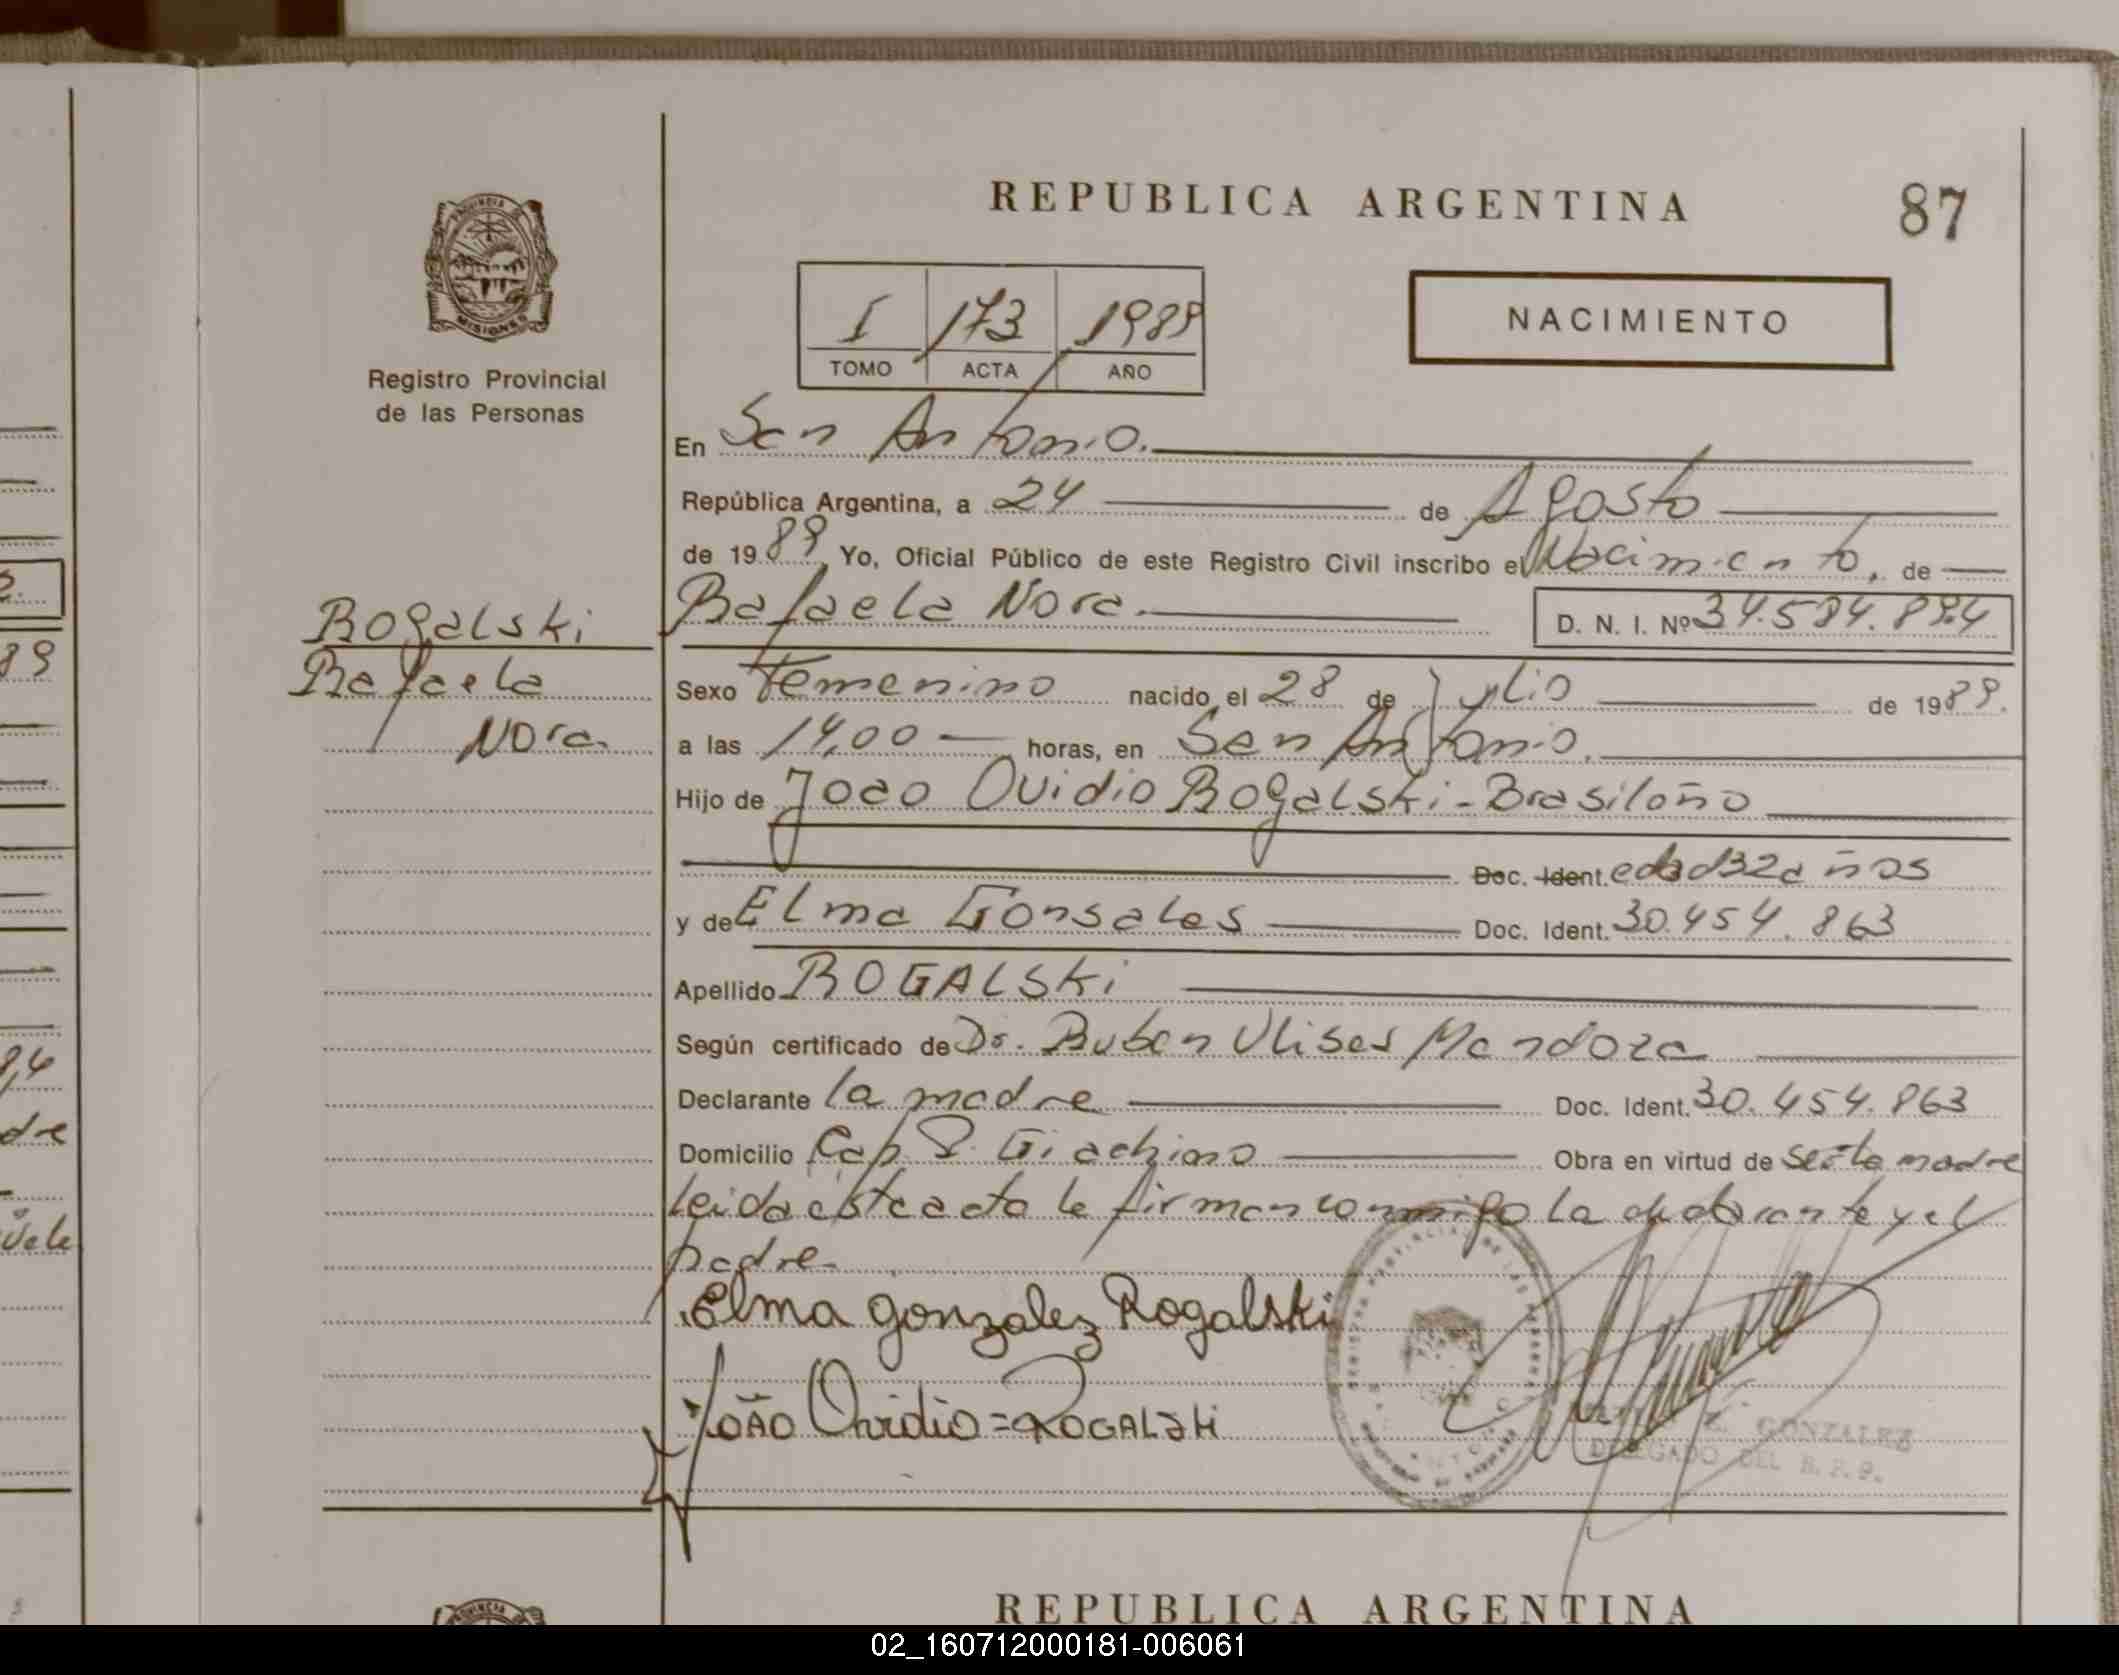 REPUBLICA ARGENTINA
87
PROVINCIA DE
MISIONES
Registro Provincial
de las Personas
I 173 1989
TOMO ACTA AÑO
NACIMIENTO
En San Antonio.
República Argentina, a 24 de Agosto
de 1989 Yo, Oficial Público de este Registro Civil inscribo el Nacimiento, de
Rafaela Nora. D. N. I. Nº 34.584.894
Rogalski
Rafaela
Nora
Sexo Femenino nacido el 28 de Julio de 1989.
a las 14,00 horas, en San Antonio.
Hijo de Joao Ovidio Rogalski - Brasileño
Doc. Ident. edad 32 años
y de Elma Gonsales Doc. Ident. 30.454.863
Apellido ROGALSKi
Según certificado de Dr. Ruben Ulises Mendoza
Declarante la madre Doc. Ident. 30.454.863
Domicilio Cap. P. Giachino Obra en virtud de ser la madre
leida ésta acta le firman conmigo la declarante y el
padre.
Elma gonzalez Rogalski
JOÃO Ovidio = ROGALSKI
GONZALEZ
DELEGADO DEL R. P. P.
REPUBLICA ARGENTINA
02_160712000181-006061